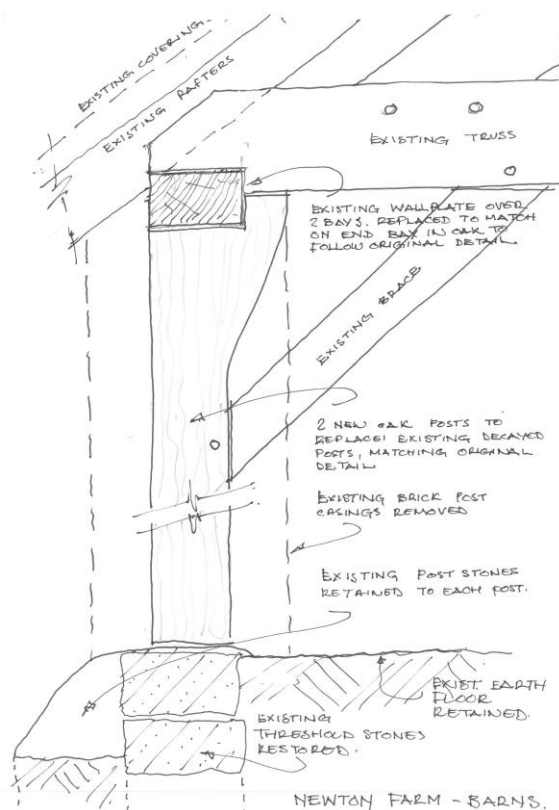 EXISTING COVERING
EXISTING RAFTERS
EXISTING TRUSS
EXISTING WALLPLATE OVER
2 BAYS. REPLACED TO MATCH
ON END BAY IN OAK TO
FOLLOW ORIGINAL DETAIL
EXISTING BRACE
2 NEW OAK POSTS TO
REPLACE EXISTING DECAYED
POSTS, MATCHING ORIGINAL
DETAIL
EXISTING BRICK POST
CASINGS REMOVED
EXISTING POST STONES
RETAINED TO EACH POST.
EXIST. EARTH
FLOOR
RETAINED.
EXISTING
THRESHOLD STONES
RESTORED.
NEWTON FARM - BARNS.